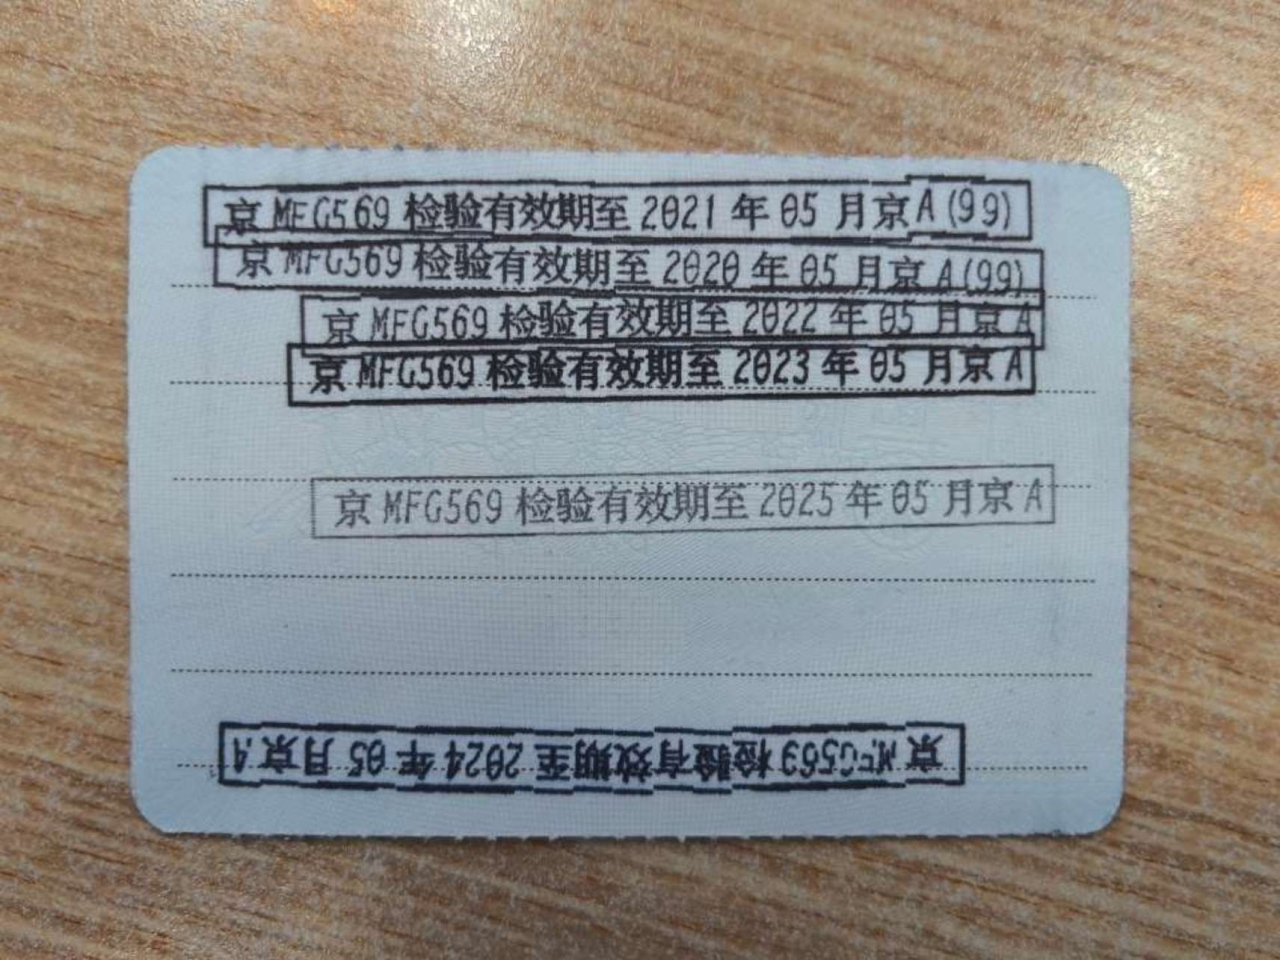 京 MFG569 检验有效期至 2021 年 05 月京 A (99)
京 MFG569 检验有效期至 2020 年 05 月京 A (99)
京 MFG569 检验有效期至 2022 年 05 月京 A
京 MFG569 检验有效期至 2023 年 05 月京 A
京 MFG569 检验有效期至 2025 年 05 月京 A
京 MFG569 检验有效期至 2024 年 05 月京 A